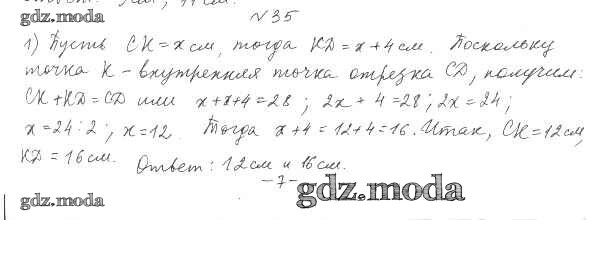 gdz.moda
№35
1) Пусть CK = x см, тогда KD = x + 4 см. Поскольку
точка K - внутренняя точка отрезка CD, получим:
CK + KD = CD или x + x + 4 = 28; 2x + 4 = 28; 2x = 24;
x = 24 : 2; x = 12. Тогда x + 4 = 12 + 4 = 16. Итак, CK = 12 см,
KD = 16 см. Ответ: 12 см и 16 см.
- 7 -
gdz.moda
gdz.moda